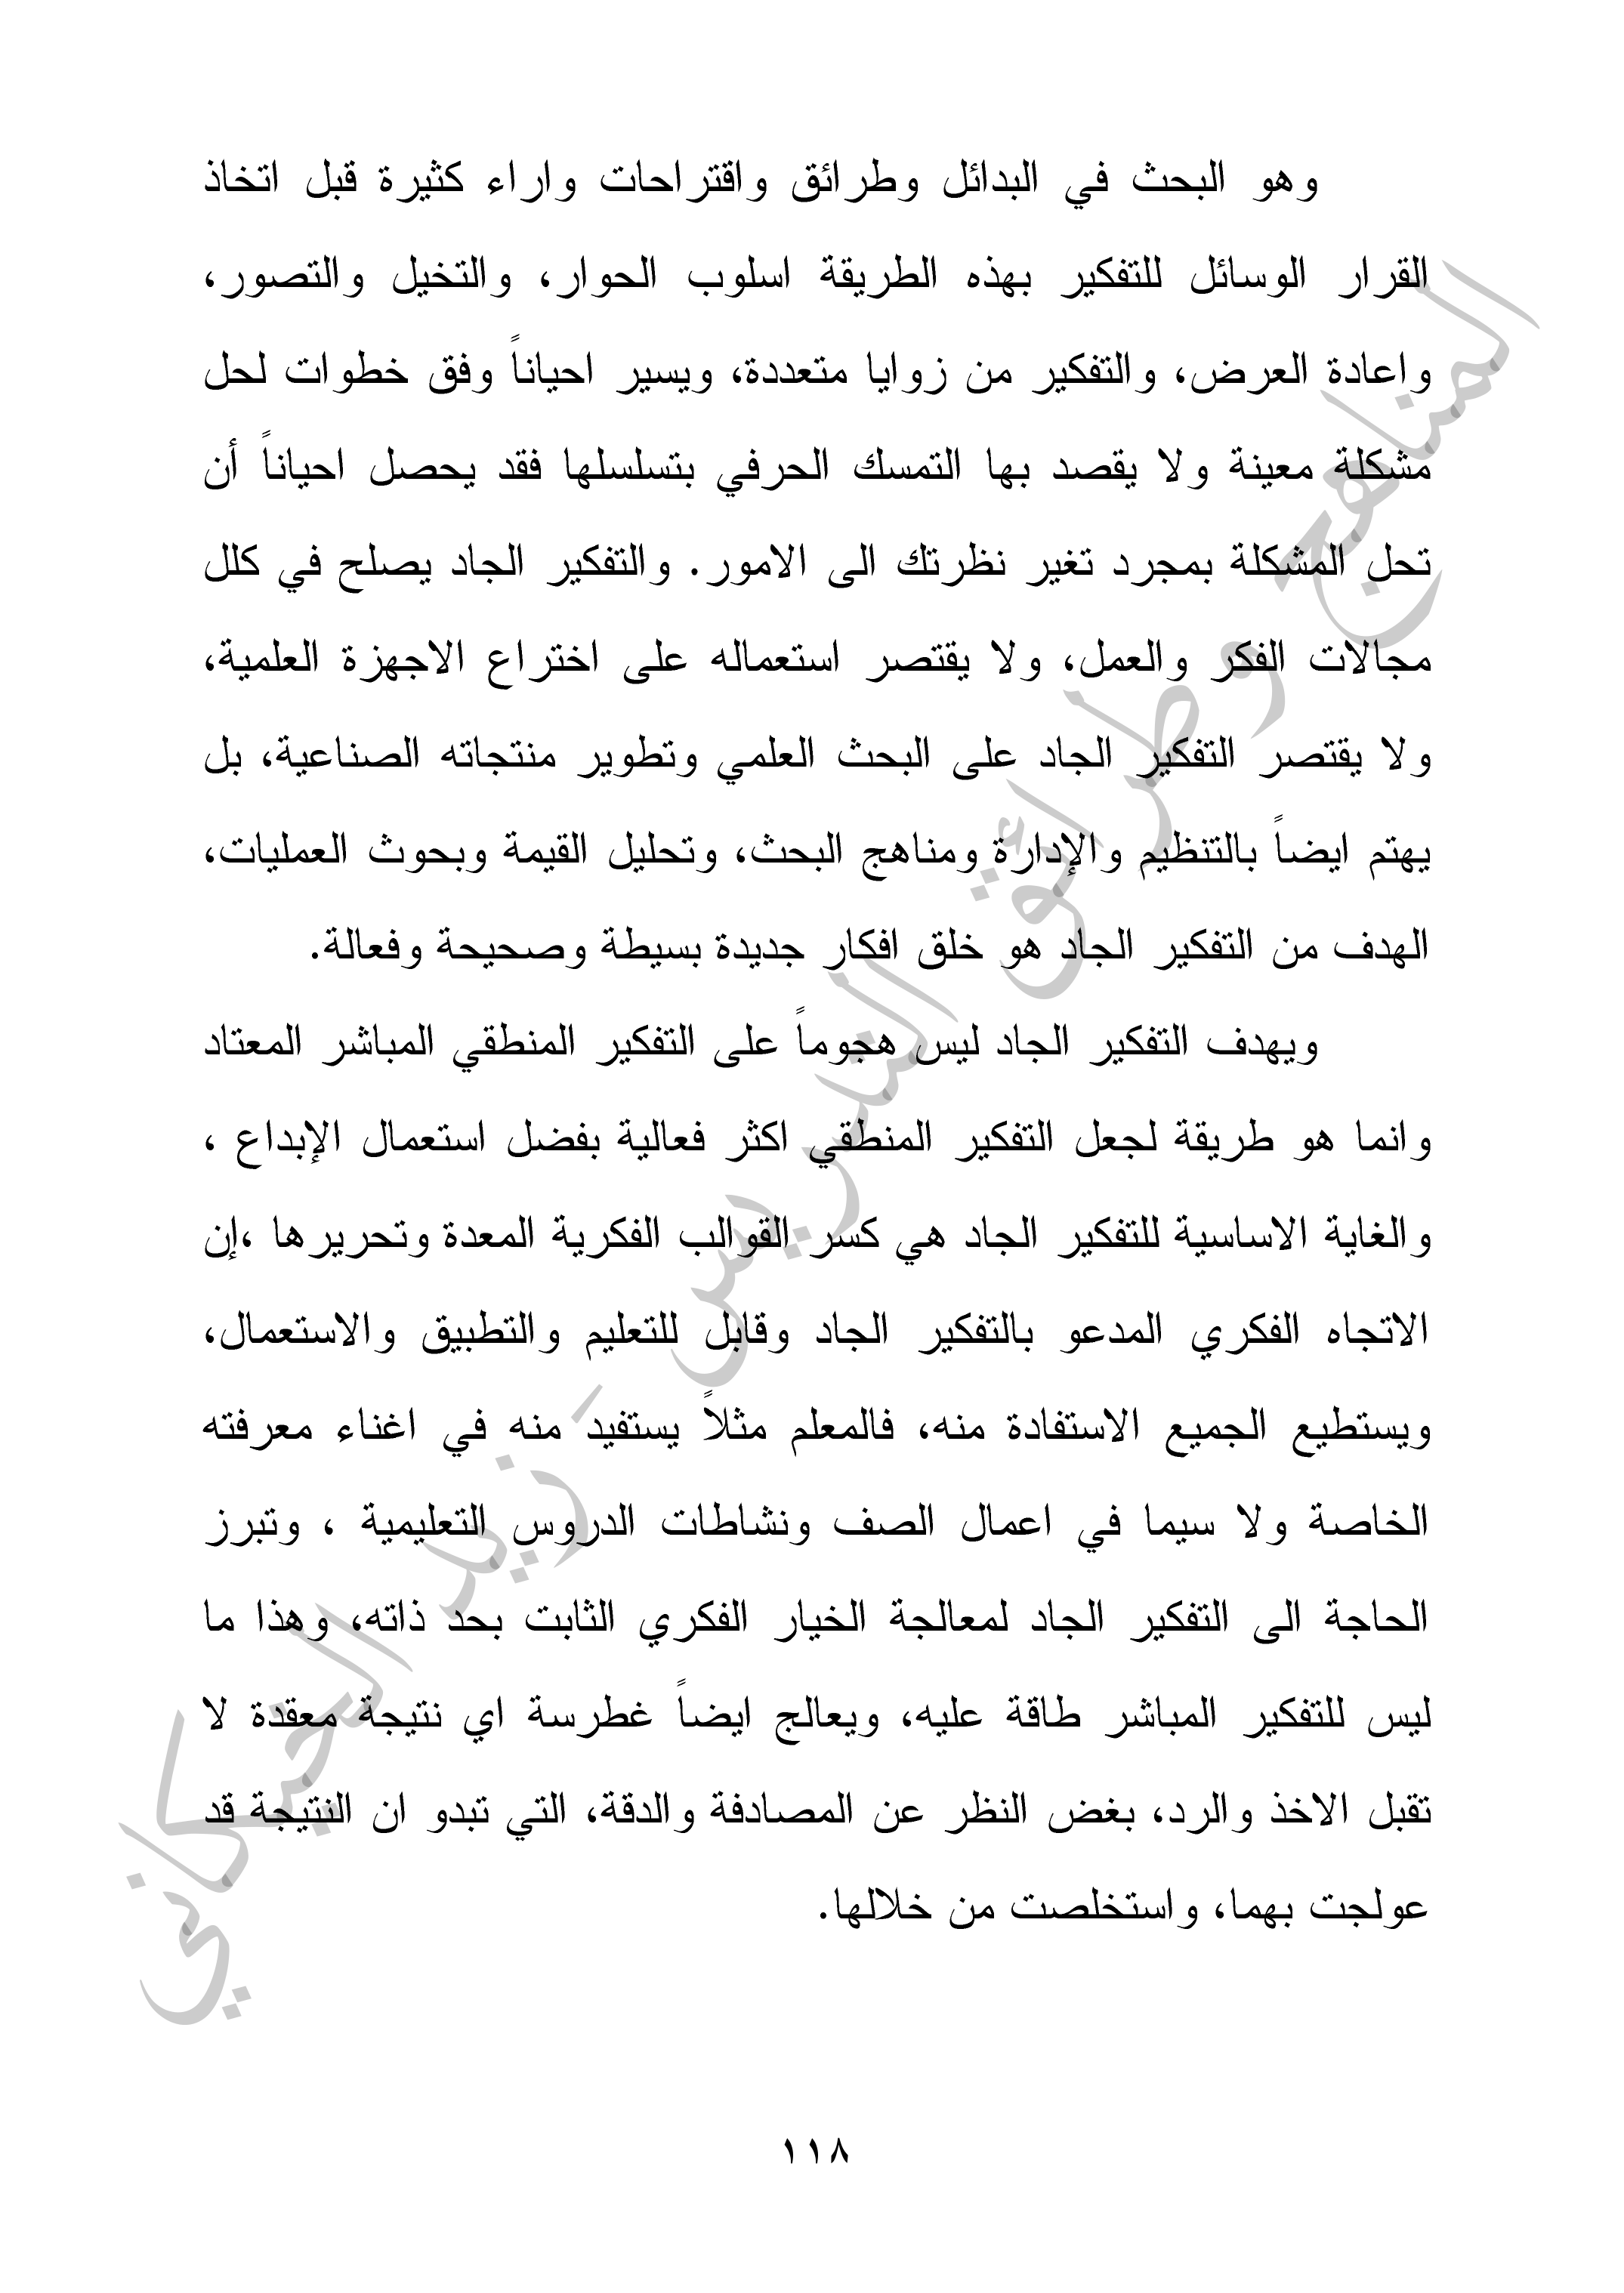 وهو البحث في البدائل وطرائق واقتراحات واراء كثيرة قبل اتخاذ
القرار الوسائل للتفكير بهذه الطريقة اسلوب الحوار، والتخيل والتصور،
واعادة العرض، والتفكير من زوايا متعددة، ويسير احياناً وفق خطوات لحل
مشكلة معينة ولا يقصد بها التمسك الحرفي بتسلسلها فقد يحصل احياناً أن
تحل المشكلة بمجرد تغير نظرتك الى الامور. والتفكير الجاد يصلح في كلل
مجالات الفكر والعمل، ولا يقتصر استعماله على اختراع الاجهزة العلمية،
ولا يقتصر التفكير الجاد على البحث العلمي وتطوير منتجاته الصناعية، بل
يهتم ايضاً بالتنظيم والإدارة ومناهج البحث، وتحليل القيمة وبحوث العمليات،
الهدف من التفكير الجاد هو خلق افكار جديدة بسيطة وصحيحة وفعالة.
ويهدف التفكير الجاد ليس هجوماً على التفكير المنطقي المباشر المعتاد
وانما هو طريقة لجعل التفكير المنطقي اكثر فعالية بفضل استعمال الإبداع ،
والغاية الاساسية للتفكير الجاد هي كسر القوالب الفكرية المعدة وتحريرها ،إن
الاتجاه الفكري المدعو بالتفكير الجاد وقابل للتعليم والتطبيق والاستعمال،
ويستطيع الجميع الاستفادة منه، فالمعلم مثلاً يستفيد منه في اغناء معرفته
الخاصة ولا سيما في اعمال الصف ونشاطات الدروس التعليمية ، وتبرز
الحاجة الى التفكير الجاد لمعالجة الخيار الفكري الثابت بحد ذاته، وهذا ما
ليس للتفكير المباشر طاقة عليه، ويعالج ايضاً غطرسة اي نتيجة معقدة لا
تقبل الاخذ والرد، بغض النظر عن المصادفة والدقة، التي تبدو ان النتيجة قد
عولجت بهما، واستخلصت من خلالها.
المناهج وطرائق التدريس - زيد الخيكاني
١١٨